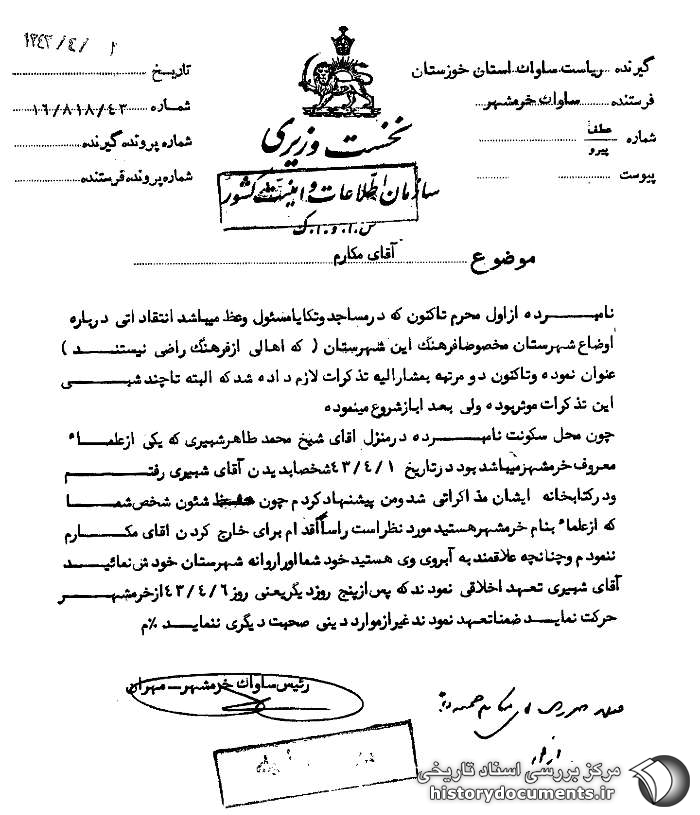 گیرنده ریاست ساواک استان خوزستان
فرستنده ساواک خرمشهر
شماره عطف پیرو
پیوست
نخست وزیری
سازمان اطلاعات و امنیت کشور
س.ا.و.ا.ک
۱۳۴۳/۴/۱
تاریخ
شماره ۱۶/۸۱۸/۴۳
شماره پرونده گیرنده
شماره پرونده فرستنده
موضوع آقای مکارم
نامبرده از اول محرم تاکنون که در مساجد و تکایا مسئول وعظ میباشد انتقاداتی درباره
اوضاع شهرستان مخصوصا فرهنگ این شهرستان ( که اهالی از فرهنگ راضی نیستند )
عنوان نموده و تاکنون دو مرتبه بمشارالیه تذکرات لازم داده شد که البته تا چند شبی
این تذکرات موثر بوده ولی بعد اباز شروع مینموده
چون محل سکونت نامبرده در منزل اقای شیخ محمد طاهر شبیری که یکی از علماء
معروف خرمشهر میباشد بود در تاریخ ۴۳/۴/۱ شخصا بدیدن آقای شبیری رفتم
و در کتابخانه ایشان مذاکراتی شد و من پیشنهاد کردم چون حفظ شئون شخص شما
که از علماء بنام خرمشهر هستید مورد نظر است راسا اقدام برای خارج کردن اقای مکارم
ننمودم و چنانچه علاقمند به آبروی وی هستید خود شما او را روانه شهرستان خودش نمائید
آقای شبیری تعهد اخلاقی نمودند که پس از پنج روز دیگر یعنی روز ۴۳/۴/۶ از خرمشهر
حرکت نماید ضمنا تعهد نمودند غیر از موارد دینی صحبت دیگری ننماید %م
رئیس ساواک خرمشهر - مهران
مرکز بررسی اسناد تاریخی
historydocuments.ir